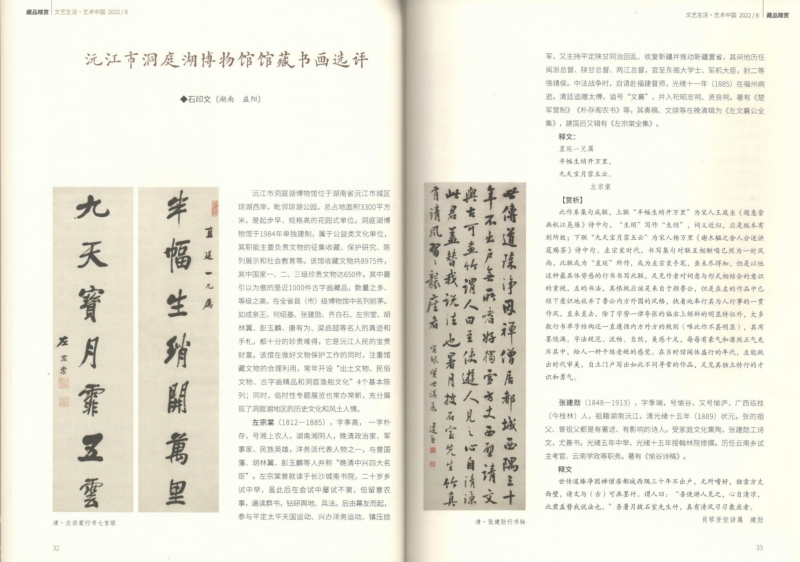 藏品精赏 文艺生活·艺术中国 2022/8
沅江市洞庭湖博物馆馆藏书画选评
◆石印文(湖南 益阳)
半幅生绡開萬里
直廷一兄属
九天寶月霏五雲
左宗棠
清·左宗棠行书七言联
沅江市洞庭湖博物馆位于湖南省沅江市城区
琼湖西岸,毗邻琼湖公园,总占地面积3300平方
米,是起步早、规格高的花园式单位。洞庭湖博
物馆于1984年单独建制,属于公益类文化单位,
其职能主要负责文物的征集收藏、保护研究、陈
列展示和社会教育等。该馆收藏文物共8975件,
其中国家一、二、三级珍贵文物达650件。其中最
引以为傲的是近1000件古字画藏品,数量之多、
等级之高,在全省县(市)级博物馆中名列前茅。
如成亲王、何绍基、张建勋、齐白石、左宗棠、胡
林翼、彭玉麟、康有为、梁启超等名人的真迹和
手札,都十分的珍贵难得,它是沅江人民的宝贵
财富。该馆在做好文物保护工作的同时,注重馆
藏文物的合理利用,常年开设“出土文物、民俗
文物、古字画精品和洞庭渔船文化”4个基本陈
列;同时,临时性专题展览也常办常新,充分展
现了洞庭湖地区的历史文化和风土人情。
左宗棠(1812—1885),字季高,一字朴
存,号湘上农人,湖南湘阴人,晚清政治家、军
事家、民族英雄,洋务派代表人物之一,与曾国
藩、胡林翼、彭玉麟等人并称“晚清中兴四大名
臣”。左宗棠曾就读于长沙城南书院,二十岁乡
试中举,虽此后在会试中屡试不第,但留意农
事,遍读群书,钻研舆地、兵法。后由幕友而起,
参与平定太平天国运动、兴办洋务运动、镇压捻
32
文艺生活·艺术中国 2022/8 藏品精赏
世傳道臻淨因禪僧居都城西隅三十
年不出户無所嗜好獨雪方丈西壁請文
與古可畫竹謂人曰吾使遊人見之心自清涼
此君蓋替我說法也暑月掞石室先生竹真
有清風習習襲座者
建勋
清·张建勋行书轴
军,又主持平定陕甘同治回乱、收复新疆并推动新疆置省。其间他历任
闽浙总督、陕甘总督、两江总督,官至东阁大学士、军机大臣,封二等
恪靖侯。中法战争时,自请赴福建督师,光绪十一年(1885)在福州病
逝。清廷追赠太傅,谥号“文襄”,并入祀昭忠祠、贤良祠。著有《楚
军营制》《朴存阁农书》等,其奏稿、文牍等在晚清辑为《左文襄公全
集》,建国后又辑有《左宗棠全集》。
释文:
直廷一兄属
半幅生绡开万里,
九天宝月霏五云。
左宗棠
【赏析】
此作系集句成联,上联“半幅生绡开万里”为宋人王庭圭《题惠崇
画秋江凫雁》诗中句,“生绡”写作“生稍”,词义近似,应是版本有
别所致;下联“九天宝月霏五云”为宋人杨万里《谢木韫之舍人分送讲
筵赐茶》诗中句。左宗棠时代,书写集句对联互相酬唱已然为一时风
尚。此联成为“直廷”所作,或为左宗棠手笔,虽未尽得知,但是以他
这种最具外势感的行书书写此联,足见作者对词意与形式相结合的意识
的重视。左的书法,其榜概应该是来自于颜鲁公,但是在左的作品中已
经下意识地放弃了鲁公内方外圆的风格,执着地奉行其为人行事的一贯
作风,直来直去。除了字势一律夸张的偏右上倾斜的明显特征外,大多
数行书单字结构还一直遵循内方外方的规则(唯此作不甚明显),其用
墨饱满,字法规范,流畅、自然,美感十足,每每有豪气和凛然正气充
斥其中,给人一种干练老辣的感觉。在当时馆阁体盛行的年代,左能跳
出时代审美,自立门户写出如此不同寻常的作品,足见其独立特行的才
识和勇气。
张建勋(1848—1913),字季端,号愉谷,又号愉庐,广西临桂
(今桂林)人,祖籍湖南沅江,清光绪十五年(1889)状元。张的祖
父、曾祖父都是有著述、有影响的诗人。受家庭文化熏陶,张建勋工诗
文,尤善书。光绪五年中举,光绪十五年授翰林院修撰。历任云南乡试
主考官、云南学政等职务。著有《愉谷诗稿》。
释文
世传道臻净因禅僧居都城西隅三十年不出户,无所嗜好,独雪方丈
西壁,请文与(古)可画墨竹。谓人曰:“吾使游人见之,心自清凉,
此君盖替我说法也。”吾暑月掞石室先生竹,真有清风习习袭座者。
肖琴贤世讲属 建勋
33